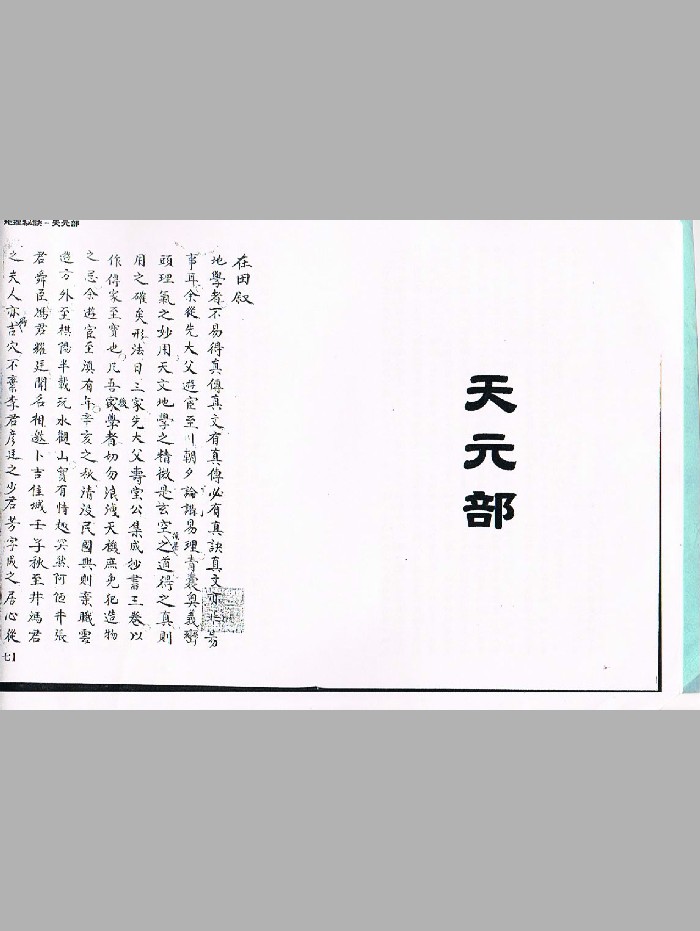 天元部
在田叙
地學者不易得真傳真文有真傳必有真訣真文亦非易
事耳余從先大父遊宦至川朝夕論講易理青囊奧義巒
頭理氣之妙用天文地學之精微是玄空之道得之真則
用之確矣形法日三家先大父壽堂公集成抄書三卷以
作傳家至寶也凡吾家學者切勿浪洩天機庶免犯造物
之忌余遊宦至滇有年辛亥之秋清没民國興則棄職雲
遊方外至棋陽半載玩水觀山賀有情趣矣然何恆井張
君舜臣馮君耀廷聞名相邀卜吉佳城壬子秋至井馮君
之夫人亦吉穴不棄李君彦廷之少君芳字成之居心從
七1